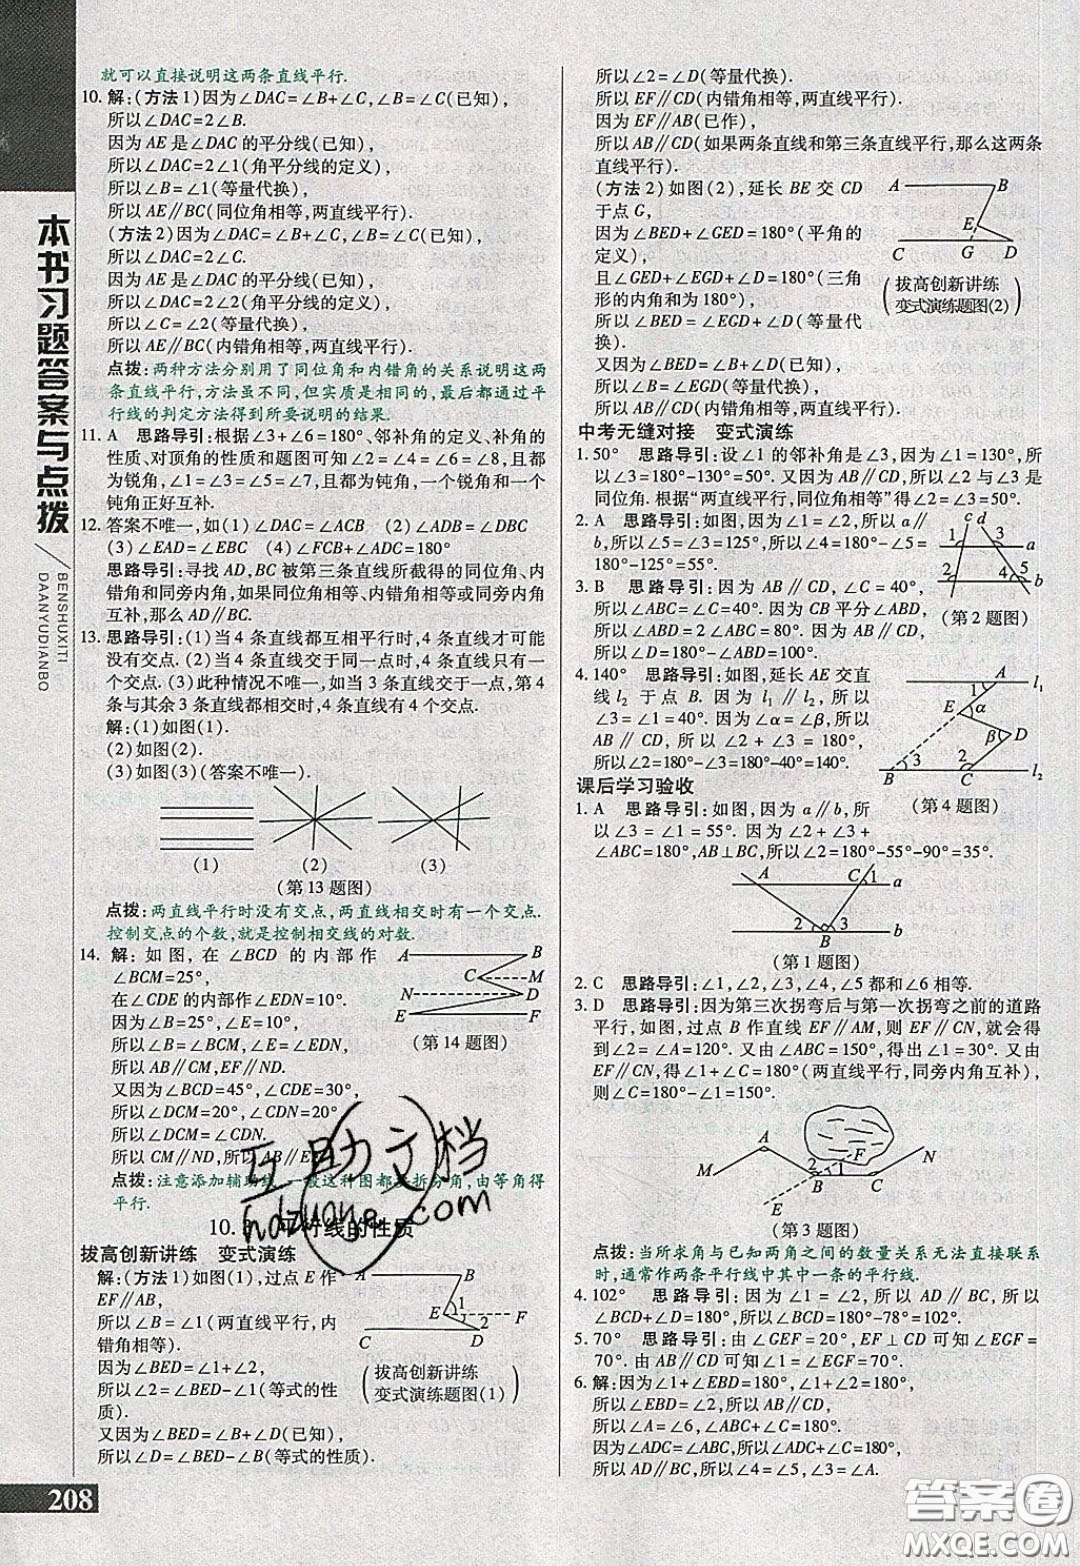 本书习题答案与点拨
BENSHUXITI
DAANYUDIANBO
就可以直接说明这两条直线平行.
10. 解:(方法1)因为∠DAC=∠B+∠C,∠B=∠C(已知),
所以∠DAC=2∠B.
因为 AE 是∠DAC 的平分线(已知),
所以∠DAC=2∠1(角平分线的定义),
所以∠B=∠1(等量代换),
所以 AE∥BC(同位角相等,两直线平行).
(方法2)因为∠DAC=∠B+∠C,∠B=∠C(已知),
所以∠DAC=2∠C.
因为 AE 是∠DAC 的平分线(已知),
所以∠DAC=2∠2(角平分线的定义),
所以∠C=∠2(等量代换),
所以 AE∥BC(内错角相等,两直线平行).
点拨:两种方法分别用了同位角和内错角的关系说明这两
条直线平行,方法虽不同,但实质是相同的,最后都通过平
行线的判定方法得到所要说明的结果.
11. A 思路导引:根据∠3+∠6=180°、邻补角的定义、补角的
性质、对顶角的性质和题图可知∠2=∠4=∠6=∠8,且都
为锐角,∠1=∠3=∠5=∠7,且都为钝角,一个锐角和一个
钝角正好互补.
12. 答案不唯一,如(1)∠DAC=∠ACB (2)∠ADB=∠DBC
(3)∠EAD=∠EBC (4)∠FCB+∠DAC=180°
思路导引:寻找 AD,BC 被第三条直线所截得的同位角、内
错角和同旁内角,如果同位角相等、内错角相等或同旁内角
互补,那么 AD∥BC.
13. 思路导引:(1)当 4 条直线都互相平行时,4 条直线才可能
没有交点.(2)当 4 条直线交于同一点时,4 条直线只有一
个交点.(3)此种情况不唯一,如当 3 条直线交于一点,第 4
条与其余 3 条直线都相交时,4 条直线有 4 个交点.
解:(1)如图(1).
(2)如图(2).
(3)如图(3)(答案不唯一).
(1) (2) (3)
(第 13 题图)
点拨:两直线平行时没有交点,两直线相交时有一个交点.
控制交点的个数,就是控制相交线的对数.
14. 解:如图,在 ∠BCD 的内部作
∠BCM=25°,
在∠CDE 的内部作∠EDN=10°.
因为∠B=25°,∠E=10°,
所以∠B=∠BCM,∠E=∠EDN,
所以 AB∥CM,EF∥ND.
又因为∠BCD=45°,∠CDE=30°,
所以∠DCM=20°,∠CDN=20°
所以∠DCM=∠CDN.
所以 CM∥ND,所以 AB∥EF.
A B C M N D E F
(第 14 题图)
点拨:注意添加辅助线,一般这种图都要拆分角,由等角得
平行.
10.3 平行线的性质
拔高创新讲练 变式演练
解:(方法1)如图(1),过点 E 作
EF∥AB,
所以∠B=∠1(两直线平行,内
错角相等).
因为∠BED=∠1+∠2,
所以∠2=∠BED-∠1(等式的性
质).
又因为∠BED=∠B+∠D(已知),
所以∠D=∠BED-∠B(等式的性质).
A B E 1 2 F C D
(拔高创新讲练
变式演练题图(1))
所以∠2=∠D(等量代换).
所以 EF∥CD(内错角相等,两直线平行).
因为 EF∥AB(已作),
所以AB∥CD(如果两条直线和第三条直线平行,那么这两条
直线平行).
(方法 2)如图(2),延长 BE 交 CD
于点 G,
因为∠BED+∠GED=180°(平角的
定义),
且∠GED+∠EGD+∠D=180°(三角
形的内角和为 180°),
所以∠BED=∠EGD+∠D(等量代换).
又因为∠BED=∠B+∠D(已知),
所以∠B=∠EGD(等量代换),
所以 AB∥CD(内错角相等,两直线平行).
A B E C G D
(拔高创新讲练
变式演练题图(2))
中考无缝对接 变式演练
1. 50° 思路导引:设∠1 的邻补角是∠3,因为∠1=130°,所
以∠3=180°-130°=50°. 又因为 AB∥CD,所以∠2 与∠3 是
同位角. 根据“两直线平行,同位角相等”得∠2=∠3=50°.
2. A 思路导引:如图,因为∠1=∠2,所以 a∥
b,所以∠3=∠5=125°,所以∠4=180°-∠5=
180°-125°=55°.
c d 1 3 a 2 4 5 b
(第 2 题图)
3. B 思路导引:因为 AB∥CD,∠C=40°,
所以∠ABC=∠C=40°. 因为 CB 平分∠ABD,
所以∠ABD=2∠ABC=80°. 又因为 AB∥CD,
所以∠D=180°-∠ABD=100°.
4. 140° 思路导引:如图,延长 AE 交直
线 l2 于点 B. 因为 l1∥l2,所以
∠3=∠1=40°. 因为∠α=∠β,所以
AB∥CD,所以∠2+∠3=180°,
所以∠2=180°-∠3=180°-40°=140°.
A 1 l1 E α β D B 3 2 C l2
(第 4 题图)
课后学习验收
1. A 思路导引:如图,因为 a∥b,所
以∠3=∠1=55°. 因为∠2+∠3+
∠ABC=180°,AB⊥BC,所以∠2=180°-55°-90°=35°.
A C 1 a 2 3 B b
(第 1 题图)
2. C 思路导引:∠1,∠2,∠3,∠4,∠5 都和∠6 相等.
3. D 思路导引:因为第三次拐弯后与第一次拐弯之前的道路
平行,如图,过点 B 作直线 EF∥AM,则 EF∥CN,就会有
得到∠2=∠A=120°. 又由∠ABC=150°,得∠1=30°. 又由
EF∥CN,得∠1+∠BCN=180°(两直线平行,同旁内角互补),
则∠C=180°-∠1=150°.
M A 2 1 F B C N E
(第 3 题图)
点拨:当所求角与已知两角之间的数量关系无法直接联系
时,通常作两条平行线中其中一条的平行线.
4. 102° 思路导引:因为∠1=∠2,所以 AD∥BC,所以
∠BCD+∠D=180°,所以∠BCD=180°-78°=102°.
5. 70° 思路导引:由∠GEF=20°,EF⊥CD 可知∠EGF=
70°. 由 AB∥CD 可知∠1=∠EGF=70°.
6. 解:因为∠1+∠EBD=180°,∠1+∠2=180°,
所以∠EBD=∠2,所以 AE∥FC,
所以∠A=∠6,∠ABC+∠C=180°.
因为∠ADC=∠ABC,所以∠ADC+∠C=180°,
所以 AD∥BC,所以∠5=∠6,所以∠5=∠A.
208
互助文档
hdzuoye.com
答案圈
MXQE.COM